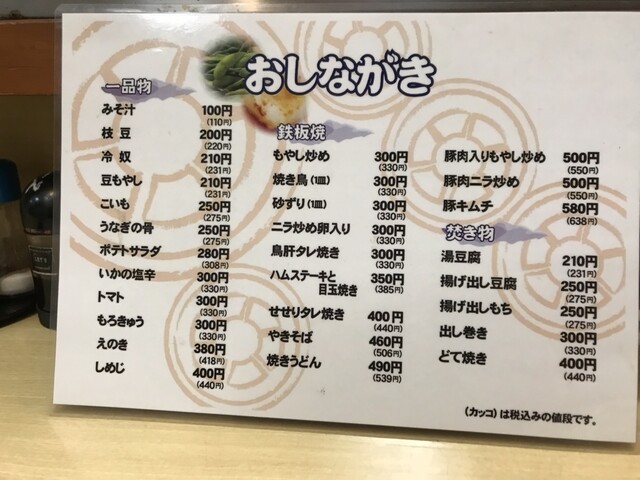 おしながき
一品物
みそ汁 100円
(110円)
枝豆 200円
(220円)
冷奴 210円
(231円)
豆もやし 210円
(231円)
こいも 250円
(275円)
うなぎの骨 250円
(275円)
ポテトサラダ 280円
(308円)
いかの塩辛 300円
(330円)
トマト 300円
(330円)
もろきゅう 300円
(330円)
えのき 380円
(418円)
しめじ 400円
(440円)
鉄板焼
もやし炒め 300円
(330円)
焼き鳥(1皿) 300円
(330円)
砂ずり(1皿) 300円
(330円)
ニラ炒め卵入り 300円
(330円)
鳥肝タレ焼き 300円
(330円)
ハムステーキと
目玉焼き 350円
(385円)
せせりタレ焼き 400円
(440円)
やきそば 460円
(506円)
焼きうどん 490円
(539円)
豚肉入りもやし炒め 500円
(550円)
豚肉ニラ炒め 500円
(550円)
豚キムチ 580円
(638円)
焚き物
湯豆腐 210円
(231円)
揚げ出し豆腐 250円
(275円)
揚げ出しもち 250円
(275円)
出し巻き 300円
(330円)
どて焼き 400円
(440円)
(カッコ)は税込みの値段です。